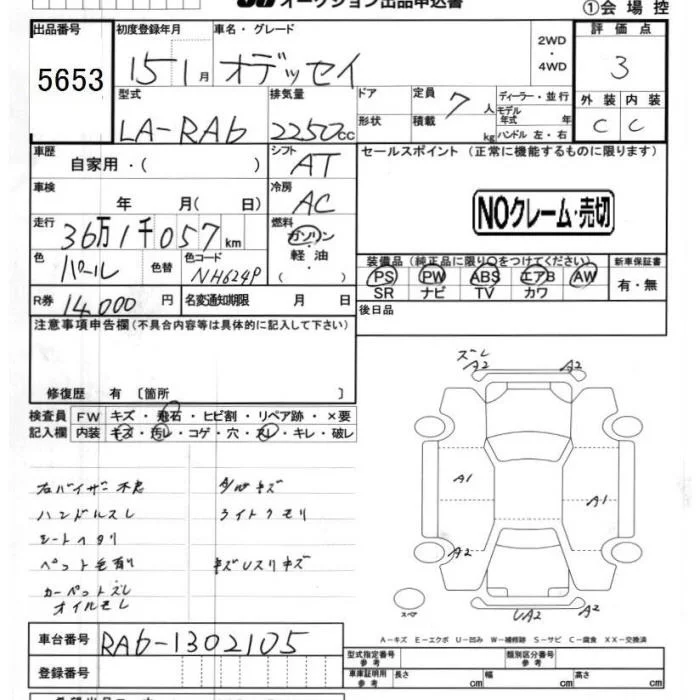 オークション出品申込書
①会場控
出品番号
5653
初度登録年月
15 1月
車名・グレード
オデッセイ
2WD・4WD
評価点
3
外装 内装
C C
型式
LA-RA6
排気量
2250cc
ドア
形状
定員 7人
積載 kg
ディーラー・並行
モデル年式 年
ハンドル 左・右
車歴
自家用・( )
シフト
AT
車検
年 月( 日)
冷房
AC
走行
36万1千057km
燃料
ガソリン・軽油・
色
パール
色替
色コード
NH624P
R券 14,000円
名変通知期限 月 日
セールスポイント(正常に機能するものに限ります)
NOクレーム・売切
装備品(純正品に限り○をつけてください)
PS PW ABS エアB AW
SR ナビ TV カワ
新車保証書
有・無
後日品
注意事項申告欄(不具合内容等は具体的に記入して下さい)
修復歴 有〔箇所 〕
検査員記入欄
FW キズ・飛石・ヒビ割・リペア跡・×要
内装 キズ・汚レ・コゲ・穴・スレ・キレ・破レ
右バイザー不良
ハンドルスレ
ライトクモリ
シートヘタリ
ペット毛有り
カーペットズレ
オイルモレ
ズレ
A2 A2
A1
A1
A2
UA2 A2
スペア
A-キズ E-エクボ U-凹み W-補修跡 S-サビ C-腐食 XX-交換済
車台番号
RA6-1302105
登録番号
型式指定番号 参考
類別区分番号 参考
車庫証明用 参考
長さ cm 幅 cm 高さ cm